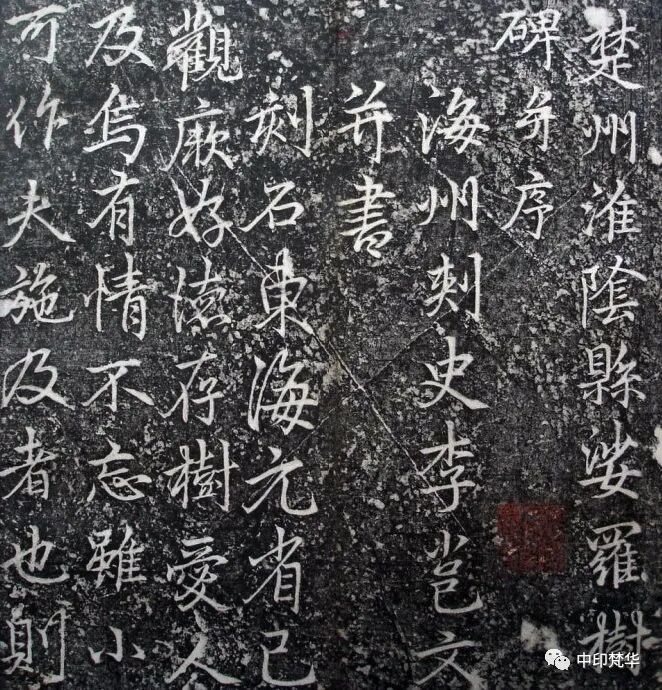 楚州淮陰縣娑羅樹
碑并序
海州刺史李邕文
并書
刻石東海元省己
觀厥好德存樹愛人
及烏有情不忘雖小
可作夫施及者也則
中印梵华